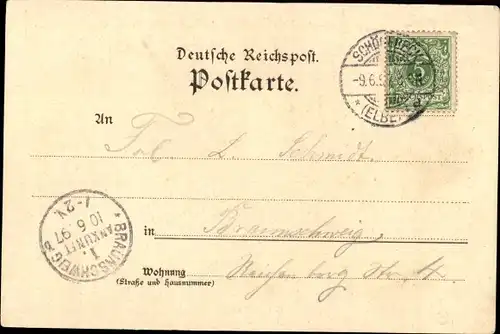 Deutsche Reichspost.
Postkarte.
SCHÖNEBECK
-9.6.9
* (ELBE)
5
An
Frl. L. Schmidt.
in Braunschweig,
Wohnung
(Straße und Hausnummer)
Str. 4.
* BRAUNSCHWEIG *
1.
ANKUNFT
10 6 97
1-2 N.